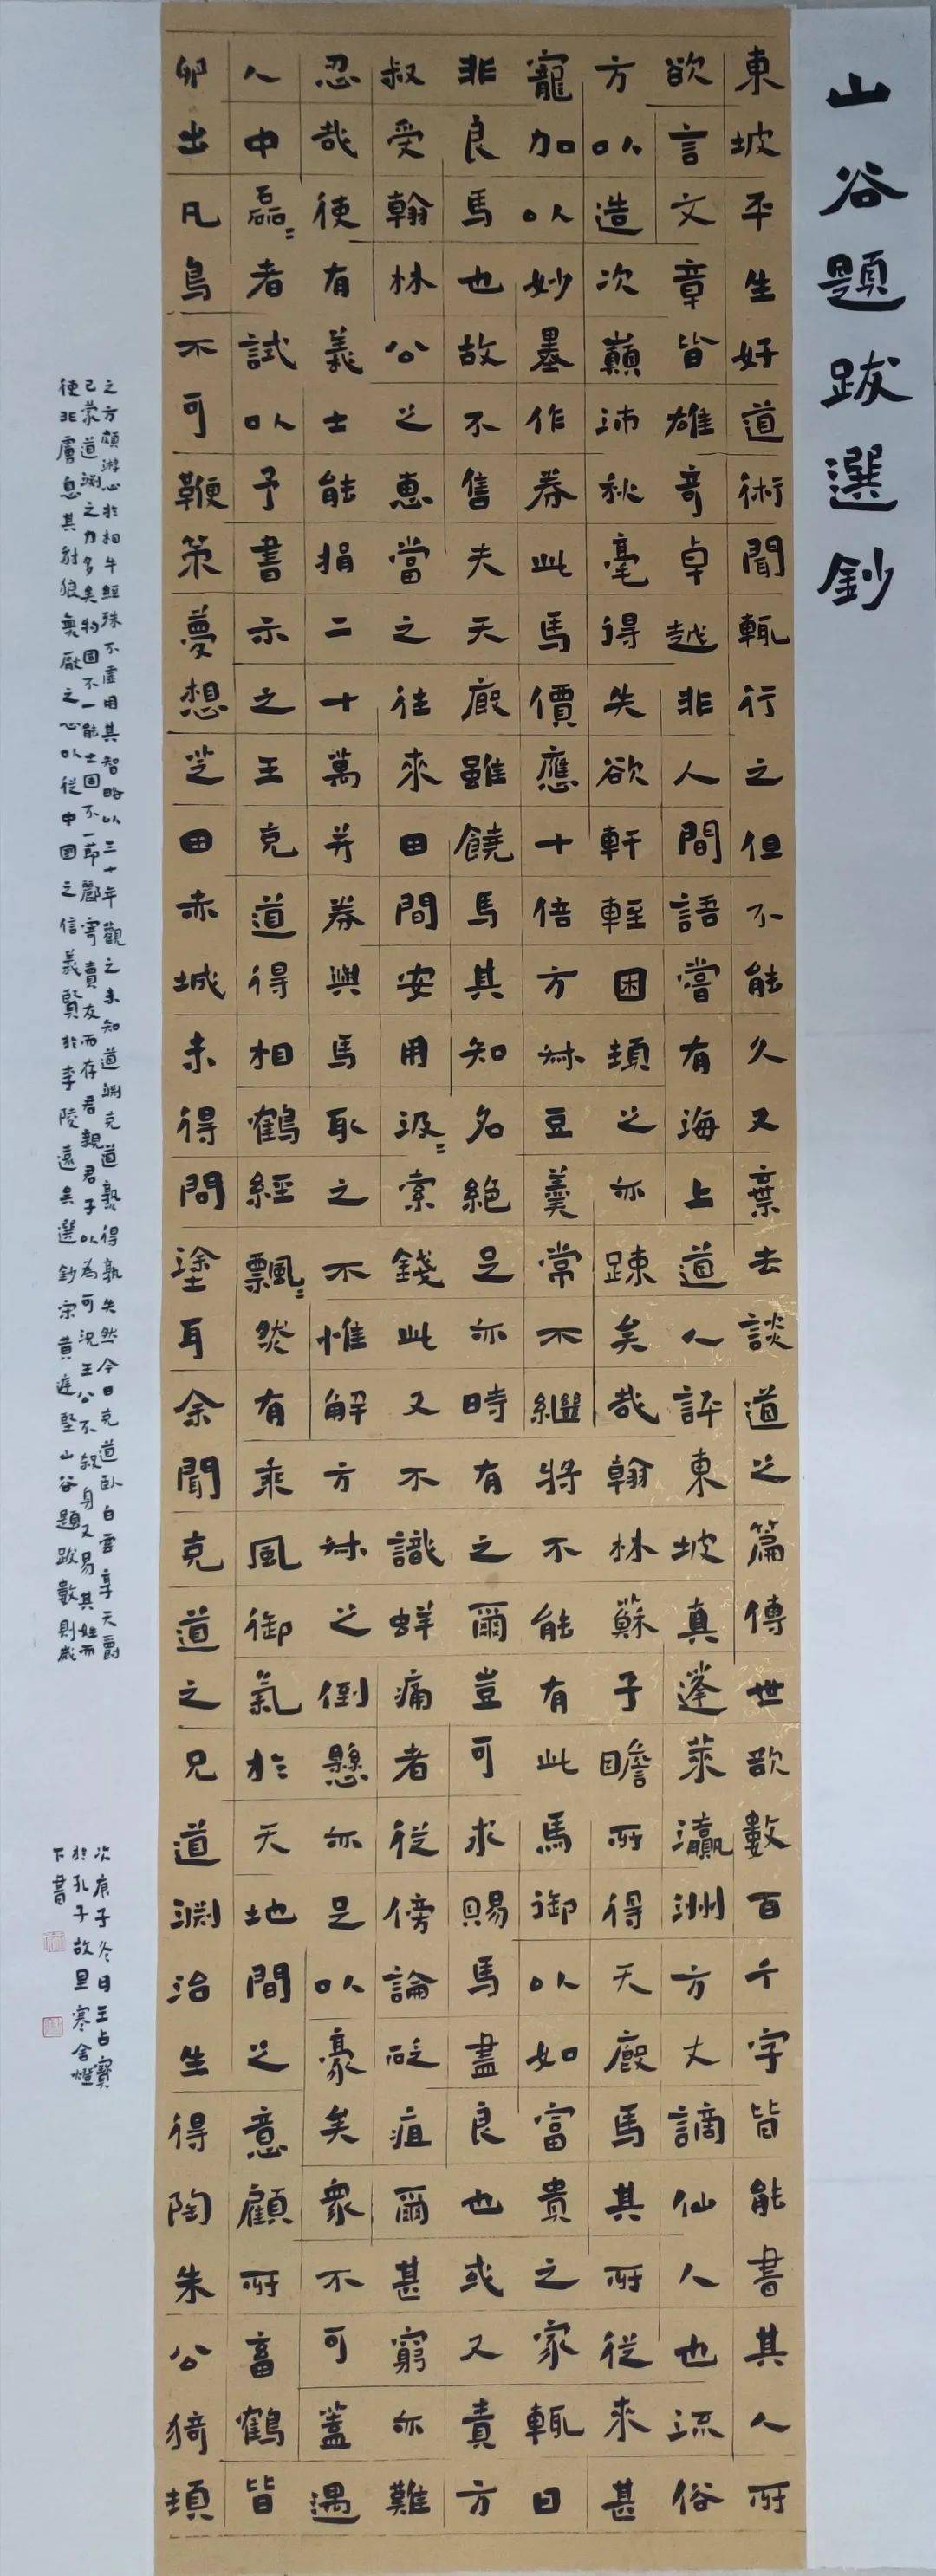 山谷題跋選鈔
東坡平生好道術聞輒行之但不能久又棄去談道之篇傳世欲數百千字皆能書其人所
欲言文章皆雄奇卓越非人間語嘗有海上道人評東坡真蓬萊瀛洲方丈謫仙人也流俗
方以造次巔沛秋毫得失欲軒輊困頓之亦踈矣哉翰林蘇子瞻所得天廄馬其所從來甚
寵加以妙墨作券此馬價應十倍方叔豆羹常不繼將不能有此馬御以如富貴之家輒曰
非良馬也故不售夫天廄雖饒馬其知名絕足亦時有之爾豈可求賜馬盡良也或又責方
叔受翰林公之惠當之往來田間安用汲〻索錢此又不識蛘痛者從傍論砭疽爾甚窮亦難
忍哉使有義士能捐二十萬并券與馬取之不惟解方叔之倒懸亦足以豪矣衆不可蓋遇
人中磊〻者試以予書示之王克道得相鶴經飄〻然有乘風御氣於天地間之意顧所畜鶴皆
卵出凡鳥不可鞭策夢想芝田赤城未得問塗耳余聞克道之兄道淵治生得陶朱公猗頓
之方頗游心於相牛經殊不虛用其智略以三十年觀之未知道淵克道孰得孰失然今日克道臥白雲享天爵
已蒙道淵之力多矣物固不一能士固不一節酈寄賣友而存君親君子以為可況王公不叙身又易其姓而
使非虜息其豺狼無厭之心以從中國之信義賢於李陵遠矣選鈔宋黃庭堅山谷題跋數則歲
次庚子冬日王占寶
於孔子故里寒舍燈
下書